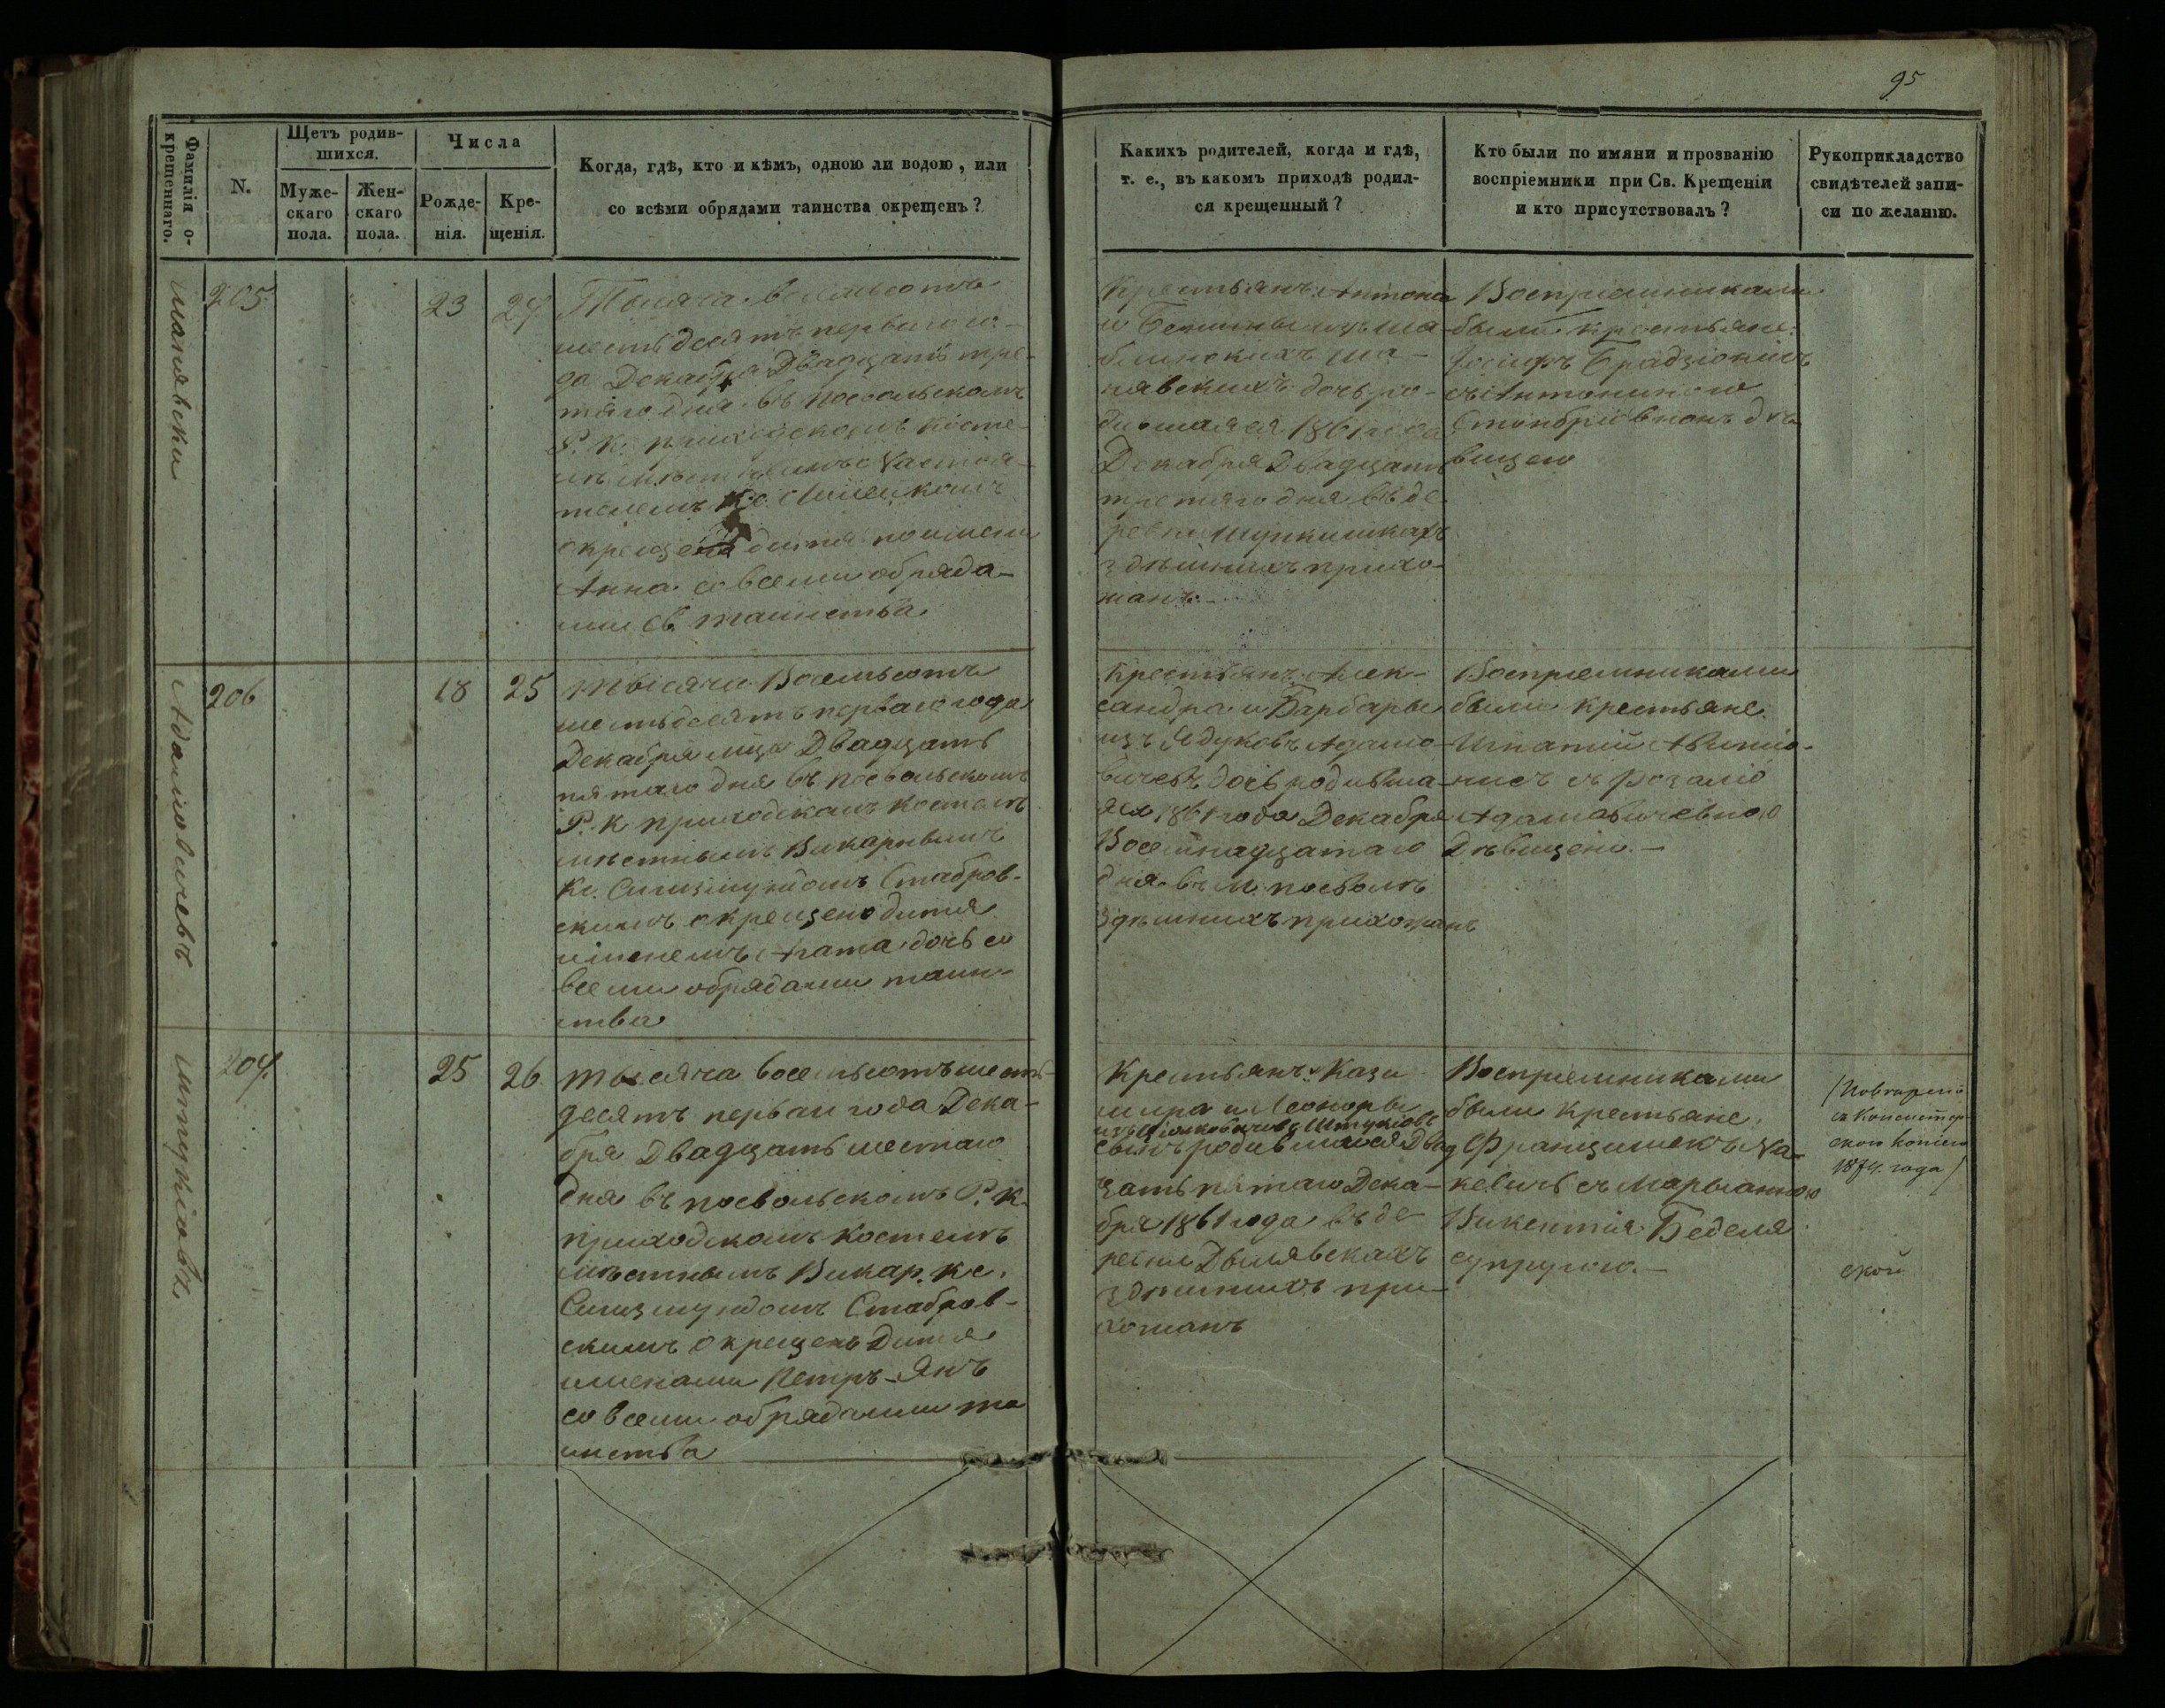 95
Фамилія о-
крещеннаго.
N.
Щетъ родив-
шихся.
Муже-
скаго
пола.
Жен-
скаго
пола.
Числа
Рожде-
нія.
Кре-
щенія.
Когда, гдѣ, кто и кѣмъ, одною ли водою, или
со всѣми обрядами таинства окрещенъ?
Какихъ родителей, когда и гдѣ,
т. е., въ какомъ приходѣ родил-
ся крещенный?
Кто были по имяни и прозванію
воспріемники при Св. Крещеніи
и кто присутствовалъ?
Рукоприкладство
свидѣтелей запи-
си по желанію.
205
23
Тысяча восемьсотъ
шестьдесятъ перваго го-
да Декабря Двадцать тре-
тяго дня въ Посвольскомъ
Р. К. приходскомъ косте-
окрещено дитя по имени
Анна со всеми обряда-
ми Св. таинства.
Крестьянъ Антона
нявскихъ дочь ро-
дившаяся 1861 года
Декабря Двадцать
третяго дня въ де-
ревни
здѣшнихъ прихо-
жанъ.
Воспріемниками
были крестьяне:
Іосифъ
съ Антониною
дѣ-
вицею
Адамовичевъ
206
18
25
Тысяча Восемьсотъ
шестьдесятъ перваго года
Декабря мца Двадцать
пятаго дня въ Посвольскомъ
Р. К. приходскомъ костелѣ
мѣстнымъ Викарнымъ
Кс. Сигизмундомъ Стабров-
скимъ окрещено дитя
именемъ Агата дочь со
всеми обрядами таин-
ства
Крестьянъ Алек-
сандра и Барбары
изъ Ядуковъ Адамо-
вичевъ дочь родивша-
яся 1861 года Декабря
Восемнадцатаго
дня въ м. Посволѣ
здѣшнихъ прихожанъ
Воспріемниками
были крестьяне:
Игнатій
съ Розалію
Адамовичевною
Дѣвицею.
Штукіовъ
207.
25
26
Тысяча восемьсотъ шесть-
десятъ перваго года Дека-
бря Двадцать шестаго
дня въ Посвольскомъ Р. К.
приходскомъ костелѣ
мѣстнымъ Викар. Кс.
Сигизмундомъ Стабров-
скимъ окрещенъ Дитя
именами Петръ-Янъ
со всеми обрядами та
инства
Крестьянъ Кази
мира и Леоноры
Штукіовъ
сынъ родившійся Двад
цать пятаго Дека-
бря 1861 года въ де
ревни
здѣшнихъ при-
хожанъ
Воспріемниками
были Крестьяне,
Францишекъ
съ Марыанною
Викентія
супругою.
съ Консистор-
скою копіею
1874. года)
ской